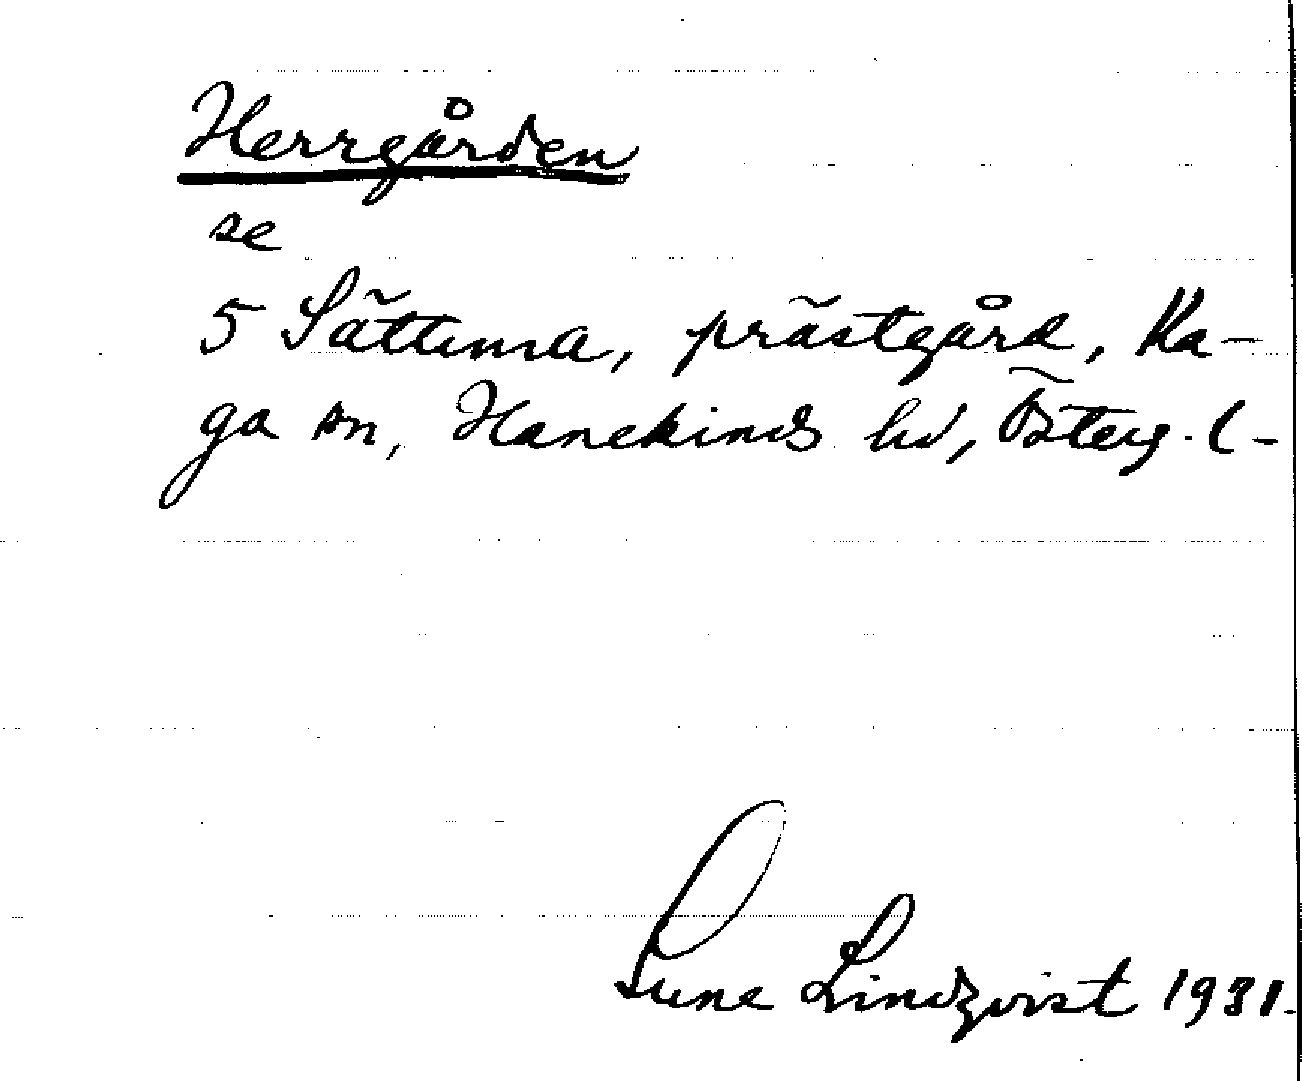 Herrgården
se
5 Sättuna, prästgård, Ka-
ga sn, Hanekinds hd, Österg. l-
Sune Lindqvist 1931.